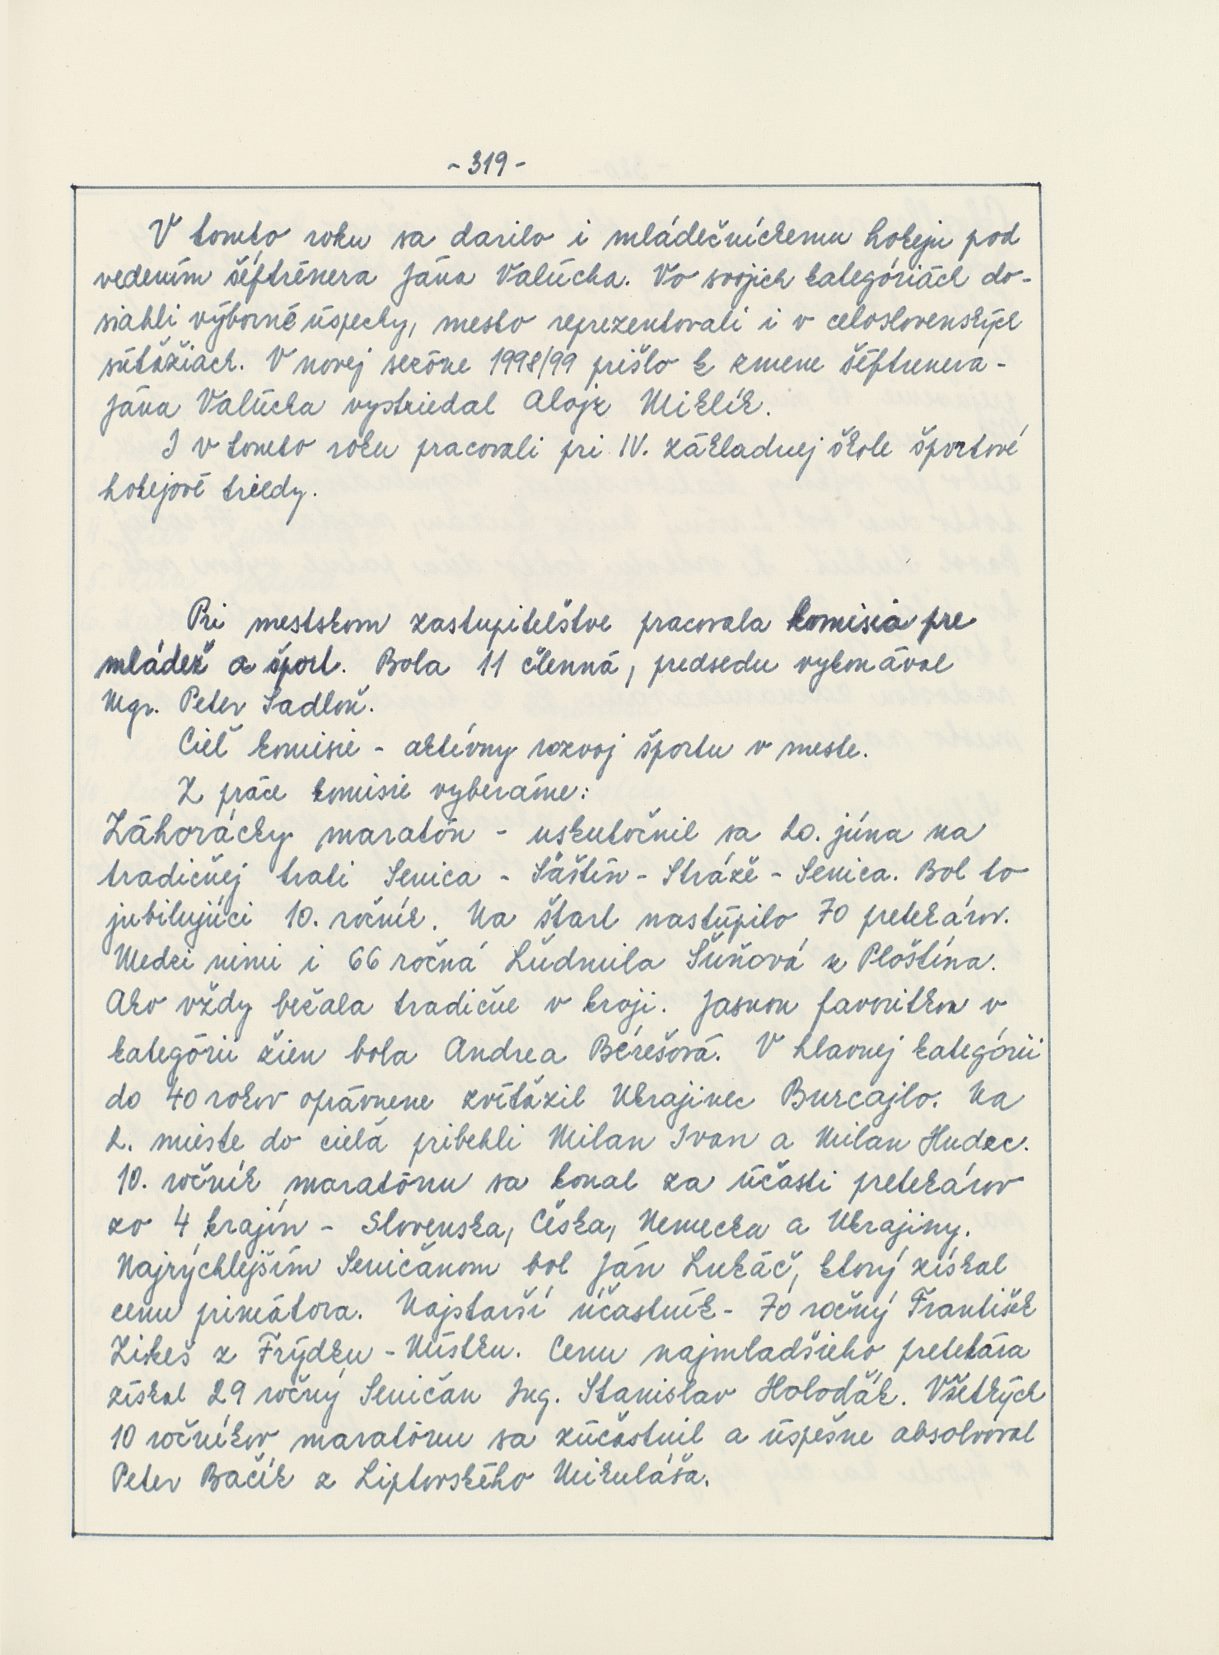 - 319 -
V tomto roku sa darilo i mládežníckemu hokeju pod
vedením šéftrénera Jána Valúcha. Vo svojich kategóriách do-
siahli výborné úspechy, mesto reprezentovali i v celoslovenských
súťažiach. V novej sezóne 1998/99 prišlo k zmene šéftrenéra -
Jána Valúcha vystriedal Alojz Miklík.
I v tomto roku pracovali pri IV. základnej škole športové
hokejové triedy.
Pri mestskom zastupiteľstve pracovala komisia pre
mládež a šport. Bola 11 členná, predsedu vykonával
Mgr. Peter Sadloň.
Cieľ komisie - aktívny rozvoj športu v meste.
Z práce komisie vyberáme:
Záhorácky maratón - uskutočnil sa 20. júna na
tradičnej trati Senica - Šaštín - Stráže - Senica. Bol to
jubilujúci 10. ročník. Na štart nastúpilo 70 pretekárov.
Medzi nimi i 66 ročná Ľudmila Šúňová z Ploštína.
Ako vždy bežala tradične v kroji. Jasnou favoritkou v
kategórii žien bola Andrea Bérešová. V hlavnej kategórii
do 40 rokov oprávnene zvíťazil Ukrajinec Burcajlo. Na
2. mieste do cieľa pribehli Milan Ivan a Milan Hudec.
10. ročník maratónu sa konal za účasti pretekárov
zo 4 krajín - Slovenska, Česka, Nemecka a Ukrajiny.
Najrýchlejším Seničanom bol Ján Lukáč, ktorý získal
cenu primátora. Najstarší účastník - 70 ročný František
Zikeš z Frýdku - Místku. Cenu najmladšieho pretekára
získal 29 ročný Seničan Ing. Stanislav Holodžák. Všetkých
10 ročníkov maratónu sa zúčastnil a úspešne absolvoval
Peter Bačík z Liptovského Mikuláša.